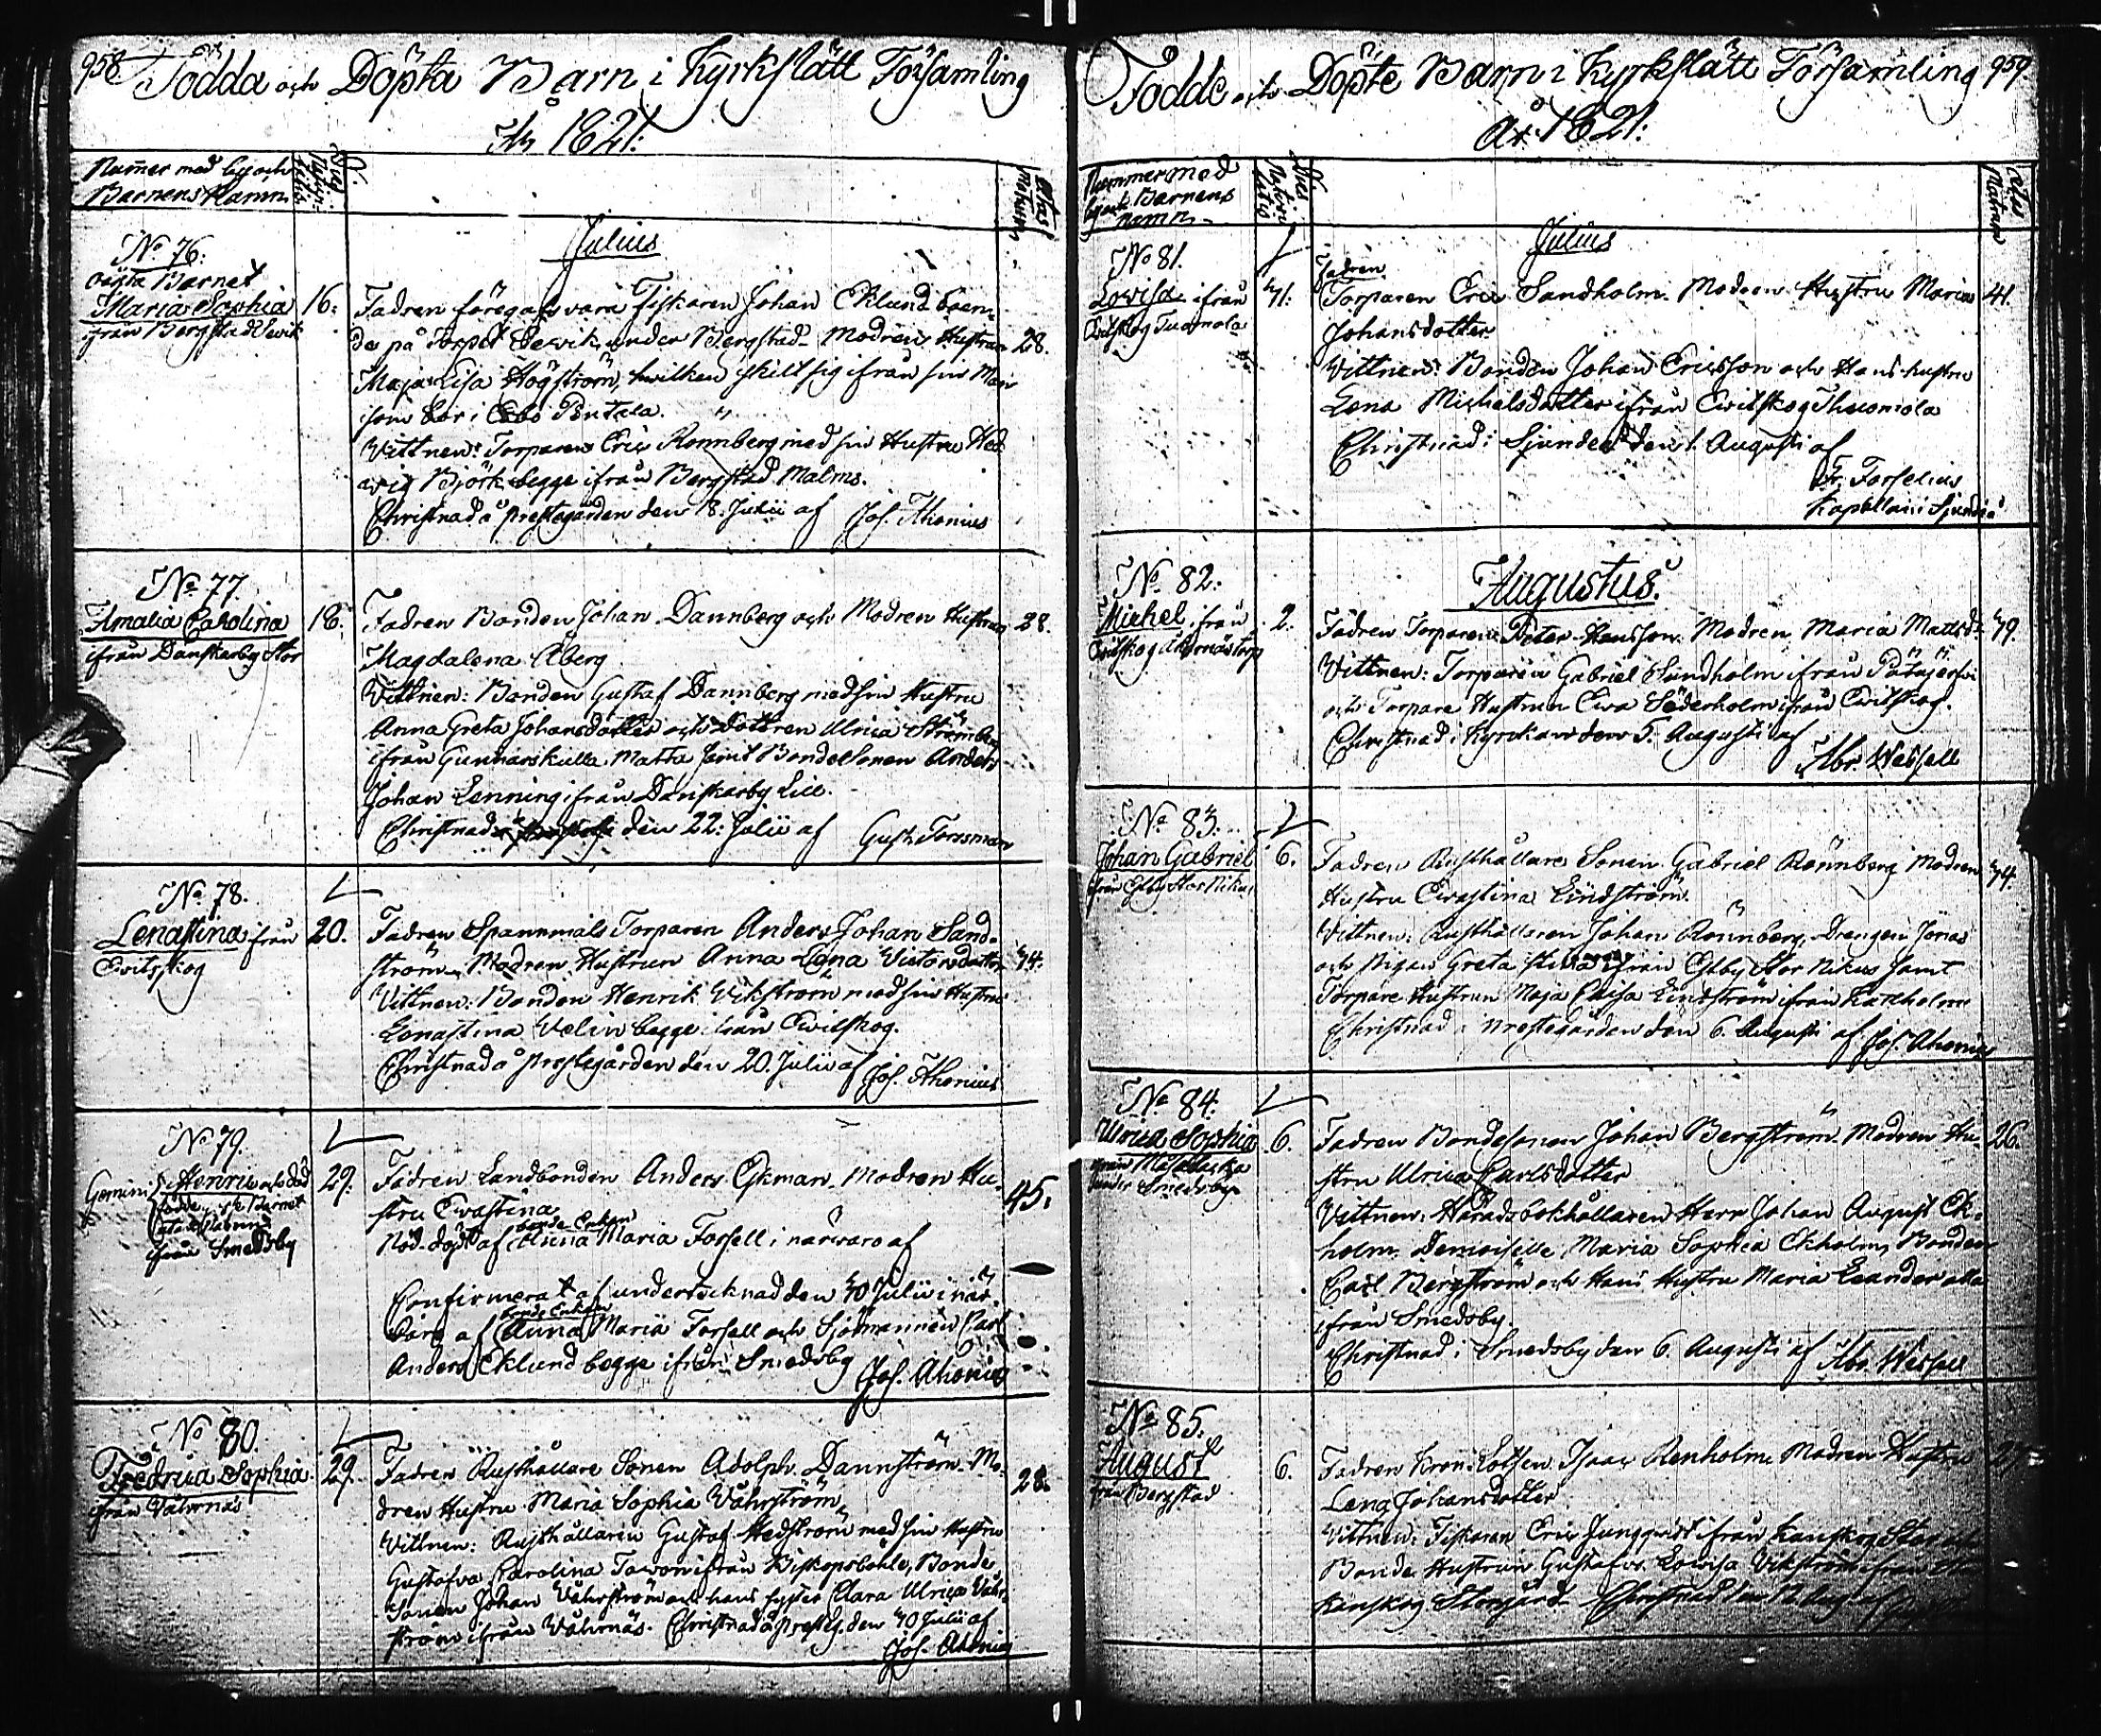 958
Födda och Döpta Barn i Kyrkslätt Församling
År 1821:
Namner med by och
Barnens Namn
Dies
Nativi-
tatis
Ætas
Matrum
Julius
No 76:
oäkta Barnet
Maria Sophia
från Bergstad
16:
Fadren föregafs vara Fiskaren Johan Eklund boen-
de på Torpet under Bergstad. Modren Hustrun
28.
Maja Lisa Högström, hvilken skilt sig ifrån sin Man
som bor i Esbo Pentala.
Vittnen: Torparen Eric Rönnberg med sin Hustru Hed-
vig Björk begge ifrån Bergstad Malms.
Christnad å prestegården den 18. Julii af Jos. Ahonius
No 77.
Amalia Carolina
ifrån Danskarby Stor
18.
Fadren Bonden Johan Dannberg och Modren Hustrun
28.
Magdalena Åberg
Vittnen: Bonden Gustaf Dannberg med sin Hustru
Anna Greta Johansdotter och Dottren Ulrica Strömberg
ifrån Gunnarskulla Matts samt Bondesonen Anders
Johan Lenning ifrån Danskarby Lill.
Christnad den 22: Julii af Gust. Forsman
No 78.
Lenastina från
Evitskog
20.
Fadren Spannmåls Torparen Anders Johan Sand-
ström, Modren Hustrun Anna Lena Victorsdotter
34.
Vittnen: Bonden Henrik Vikström med sin Hustru
Lenastina Velin begge ifrån Evitskog.
Christnad å prestegården den 20. Julii af
Jos. Ahonius
No 79.
Gemini
Henric och död
födde Barnet
utan Namn
ifrån Smedsby
29.
Fadren Landbonden Anders Ekman. Modren Hu-
45.
stru Evastina
bonde Enkan
Nöd-döpt af Anna Maria Forsell i närvaro af
Confirmerat af undertecknad den 30 Julii i när-
bonde Enkan
varo af Anna Maria Forsell och Sjömannen Carl
Anders Eklund begge ifrån Smedsby
Jos. Ahonius
No 80.
Fredrica Sophia
från Våhrnäs
29.
Fadren Rusthållare Sonen Adolph Dannström. Mo-
28.
dren Hustru Maria Sophia Våhrström,
Vittnen: Rusthållaren Gustaf Hedström med sin Hustru
Gustafva Carolina ifrån Biskopsböle, Bonde
Sonen Johan Våhrström och hans syster Clara Ulrica Våhr-
ström ifrån Våhrnäs. Christnad å Presteg. den 30 Julii af
Jos. Ahonius
Födde och Döpte Barn i Kyrkslätt Församling
959
År 1821:
Nummer med
by och Barnens
namn
Dies
Nativi-
tatis
Ætas
Matrum
Julius
No 81.
Lovisa ifrån
Evitskog Tuomola
31.
Fadren
Torparen Eric Sandholm. Modren Hustru Maria
41.
Johansdotter
Vittnen: Bonden Johan Ericsson och Hans hustru
Lena Michelsdotter ifrån Evitskog Thuomola
Christnad i Sjundeå den 1. Augusti af
Er. Forselius
Kapellan i Sjundeå
Augustus.
No 82:
Michel, ifrån
Evitskog
2.
Fadren Torparen Peter Hansson. Modren Maria Mattsd:
39.
Vittnen: Torparen Gabriel Sundholm ifrån Påtajärfvi
och Torpare Hustrun Eva Söderholm ifrån Evitskog.
Christnad i Kyrckan den 5. Augusti af
Abr. Wessell
No 83.
Johan Gabriel
från Esby Stor Nikus
6.
Fadren Rusthållare Sonen Gabriel Rönnberg Modren
34.
Hustru Evastina Lindström.
Vittnen: Rusthållaren Johan Rönnberg, Drengen Jonas
och pigan Greta Stina ifrån Esby Stor Nikus samt
Torpare Hustrun Maja Caisa Lindström ifrån
Christnad i prestegården den 6. Augusti af Jos. Ahonius
No 84.
Ulrica Sophia
från
under Smedsby
6.
Fadren Bondesonen Johan Bergström. Modren Hu-
26.
stru Ulrica Carlsdotter
Vittnen: Häradsbokhållaren Herr Johan August Ek-
holm. Demoiselle Maria Sophia Ekholm, Bonden
Carl Bergström och Hans Hustru Maria Leander alla
ifrån Smedsby.
Christnad i Smedsby den 6. Augusti af Abr. Wessell
No 85.
August
från Bergstad
6.
Fadren Kron-Lotsen Isaac Renholm. Modren Hustru
Lena Johansdotter
Vittnen: Fiskaren Eric Jungqvist ifrån Kanskog
Bonde Hustrun Gustafva Lovisa Vikström ifrån
Kanskog Storgård Christnad den 12 Aug. af